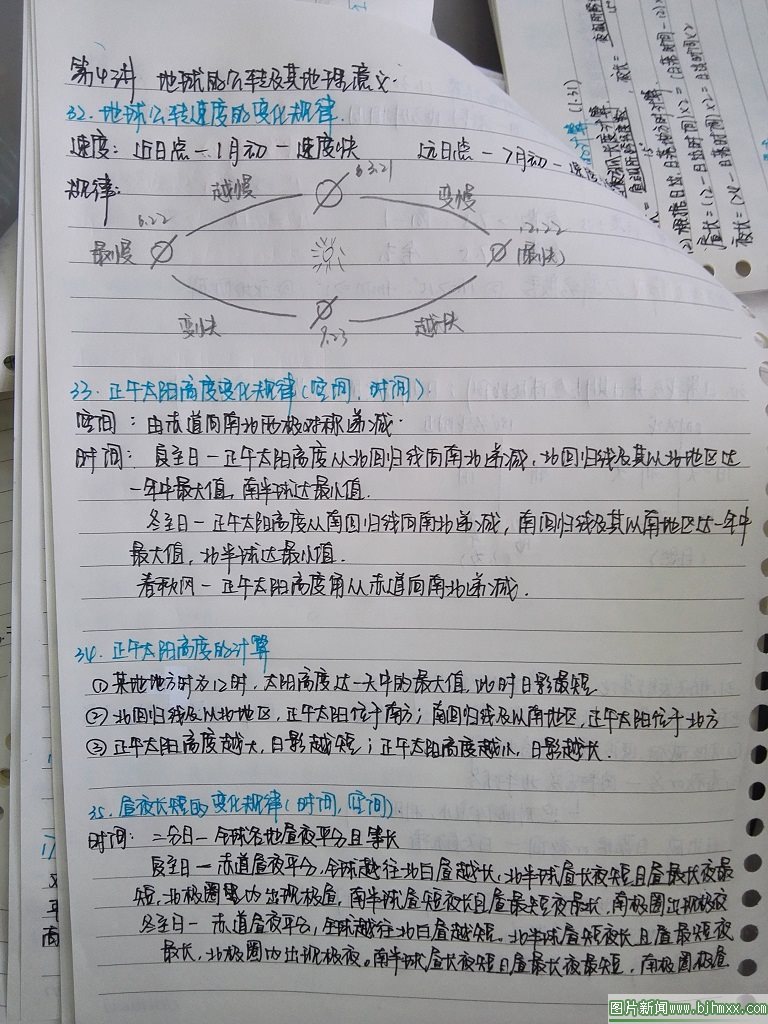 第4讲 地球的公转及其地理意义.
32. 地球公转速度的变化规律.
速度: 近日点 — 1月初 — 速度快 远日点 — 7月初 — 速
规律:
越慢
3.21
变慢
6.22
12.22
最慢
(最快)
变快
9.23
越快
33. 正午太阳高度变化规律(空间、时间)
空间: 由赤道向南北两极对称递减.
时间: 夏至日 — 正午太阳高度从北回归线向南北递减, 北回归线及其以北地区达
一年中最大值, 南半球达最小值.
冬至日 — 正午太阳高度从南回归线向南北递减, 南回归线及其以南地区达一年中
最大值, 北半球达最小值.
春秋分 — 正午太阳高度角从赤道向南北递减.
34. 正午太阳高度的计算
①某地地方时为12时, 太阳高度达一天中的最大值, 此时日影最短
②北回归线及以北地区, 正午太阳位于南方; 南回归线及以南地区, 正午太阳位于北方
③正午太阳高度越大, 日影越短; 正午太阳高度越小, 日影越长.
35. 昼夜长短的变化规律(时间, 空间)
时间: 二分日 — 全球各地昼夜平分且等长
夏至日 — 赤道昼夜平分, 全球越往北白昼越长, 北半球昼长夜短且昼最长夜最
短, 北极圈内出现极昼, 南半球昼短夜长且昼最短夜最长, 南极圈出现极夜
冬至日 — 赤道昼夜平分, 全球越往北白昼越短. 北半球昼短夜长且昼最短夜
最长, 北极圈内出现极夜. 南半球昼长夜短且昼最长夜最短, 南极圈极昼
(1.31)
昼长=(12-日出时间)×2=(日落时间-12)×2
夜长=(24-日落时间)×2=日出时间×2
图片新闻www.bjhmxx.com